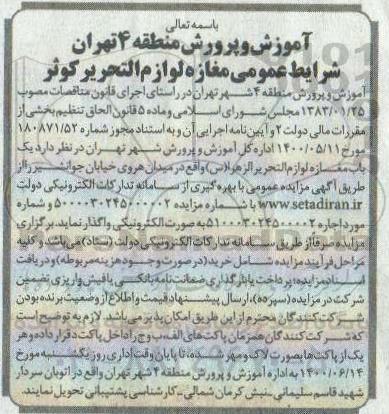 باسمه تعالی
آموزش و پرورش منطقه ۴ تهران
شرایط عمومی مغازه لوازم التحریر کوثر
آموزش و پرورش منطقه ۴ شهر تهران در راستای اجرای قانون مناقصات مصوب
۱۳۸۳/۰۱/۲۵ مجلس شورای اسلامی و ماده ۵ قانون الحاق تنظیم بخشی از
مقررات مالی دولت ۲ و آیین نامه اجرایی آن و به استناد مجوز شماره ۱۸۰۸۷۱/۵۲
مورخ ۱۴۰۰/۰۵/۱۱ اداره کل آموزش و پرورش شهر تهران در نظر دارد یک
باب مغازه لوازم التحریر الزهرا(س) واقع در میدان هروی خیابان جوانشیر را از
طریق آگهی مزایده عمومی با بهره گیری از سامانه تدارکات الکترونیکی دولت
www.setadiran.ir با شماره مزایده ۵۰۰۰۰۳۰۲۴۵۰۰۰۰۰۲ و شماره
مورد اجاره ۵۱۰۰۰۰۳۰۲۴۵۰۰۰۰۰۲ به صورت الکترونیکی واگذار نماید. برگزاری
مزایده صرفا از طریق سامانه تدارکات الکترونیکی دولت (ستاد) می باشد و کلیه
مراحل فرآیند مزایده شامل خرید (در صورت وجود هزینه مربوطه) و دریافت
اسناد مزایده؛ پرداخت یا بارگذاری ضمانت نامه بانکی یا فیش واریزی تضمین
شرکت در مزایده (سپرده)، ارسال پیشنهاد قیمت و اطلاع از وضعیت برنده بودن
شرکت کنندگان محترم از این طریق امکان پذیر می باشد. لازم به توضیح است
که شرکت کنندگان همزمان پاکت های الف، ب و ج را داخل پاکت د قرار داده و هر
یک از پاکت ها بصورت لاک و مهر شده، تا پایان وقت اداری روز یکشنبه مورخ
۱۴۰۰/۰۶/۱۴ به اداره آموزش و پرورش منطقه ۴ شهر تهران واقع در اتوبان سردار
شهید قاسم سلیمانی- نبش کرمان شمالی- کارشناسی پشتیبانی تحویل نمایند.